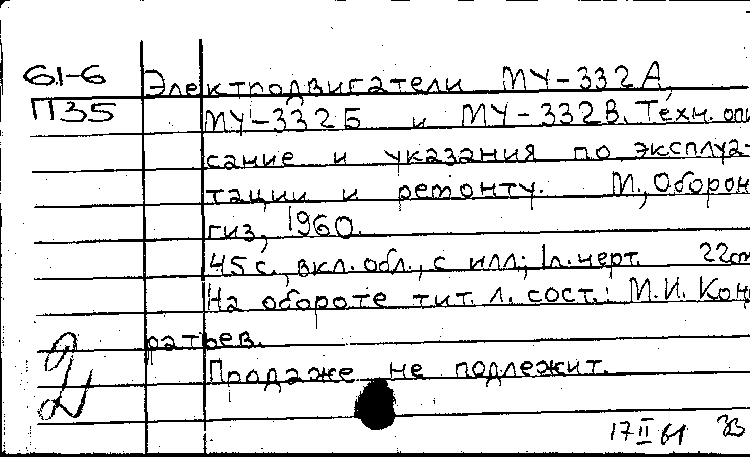 61-6 Электродвигатели МУ-332А,
П35 МУ-332Б и МУ-332В. Техн. опи
сание и указания по эксплуа-
тации и ремонту. М., Оборон
гиз, 1960.
45 с., вкл. обл., с илл.; 1 л. черт. 22 см
На обороте тит. л. сост.: М.И. Кон
ратьев.
Продаже не подлежит.
17 II 61